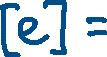 [e] =